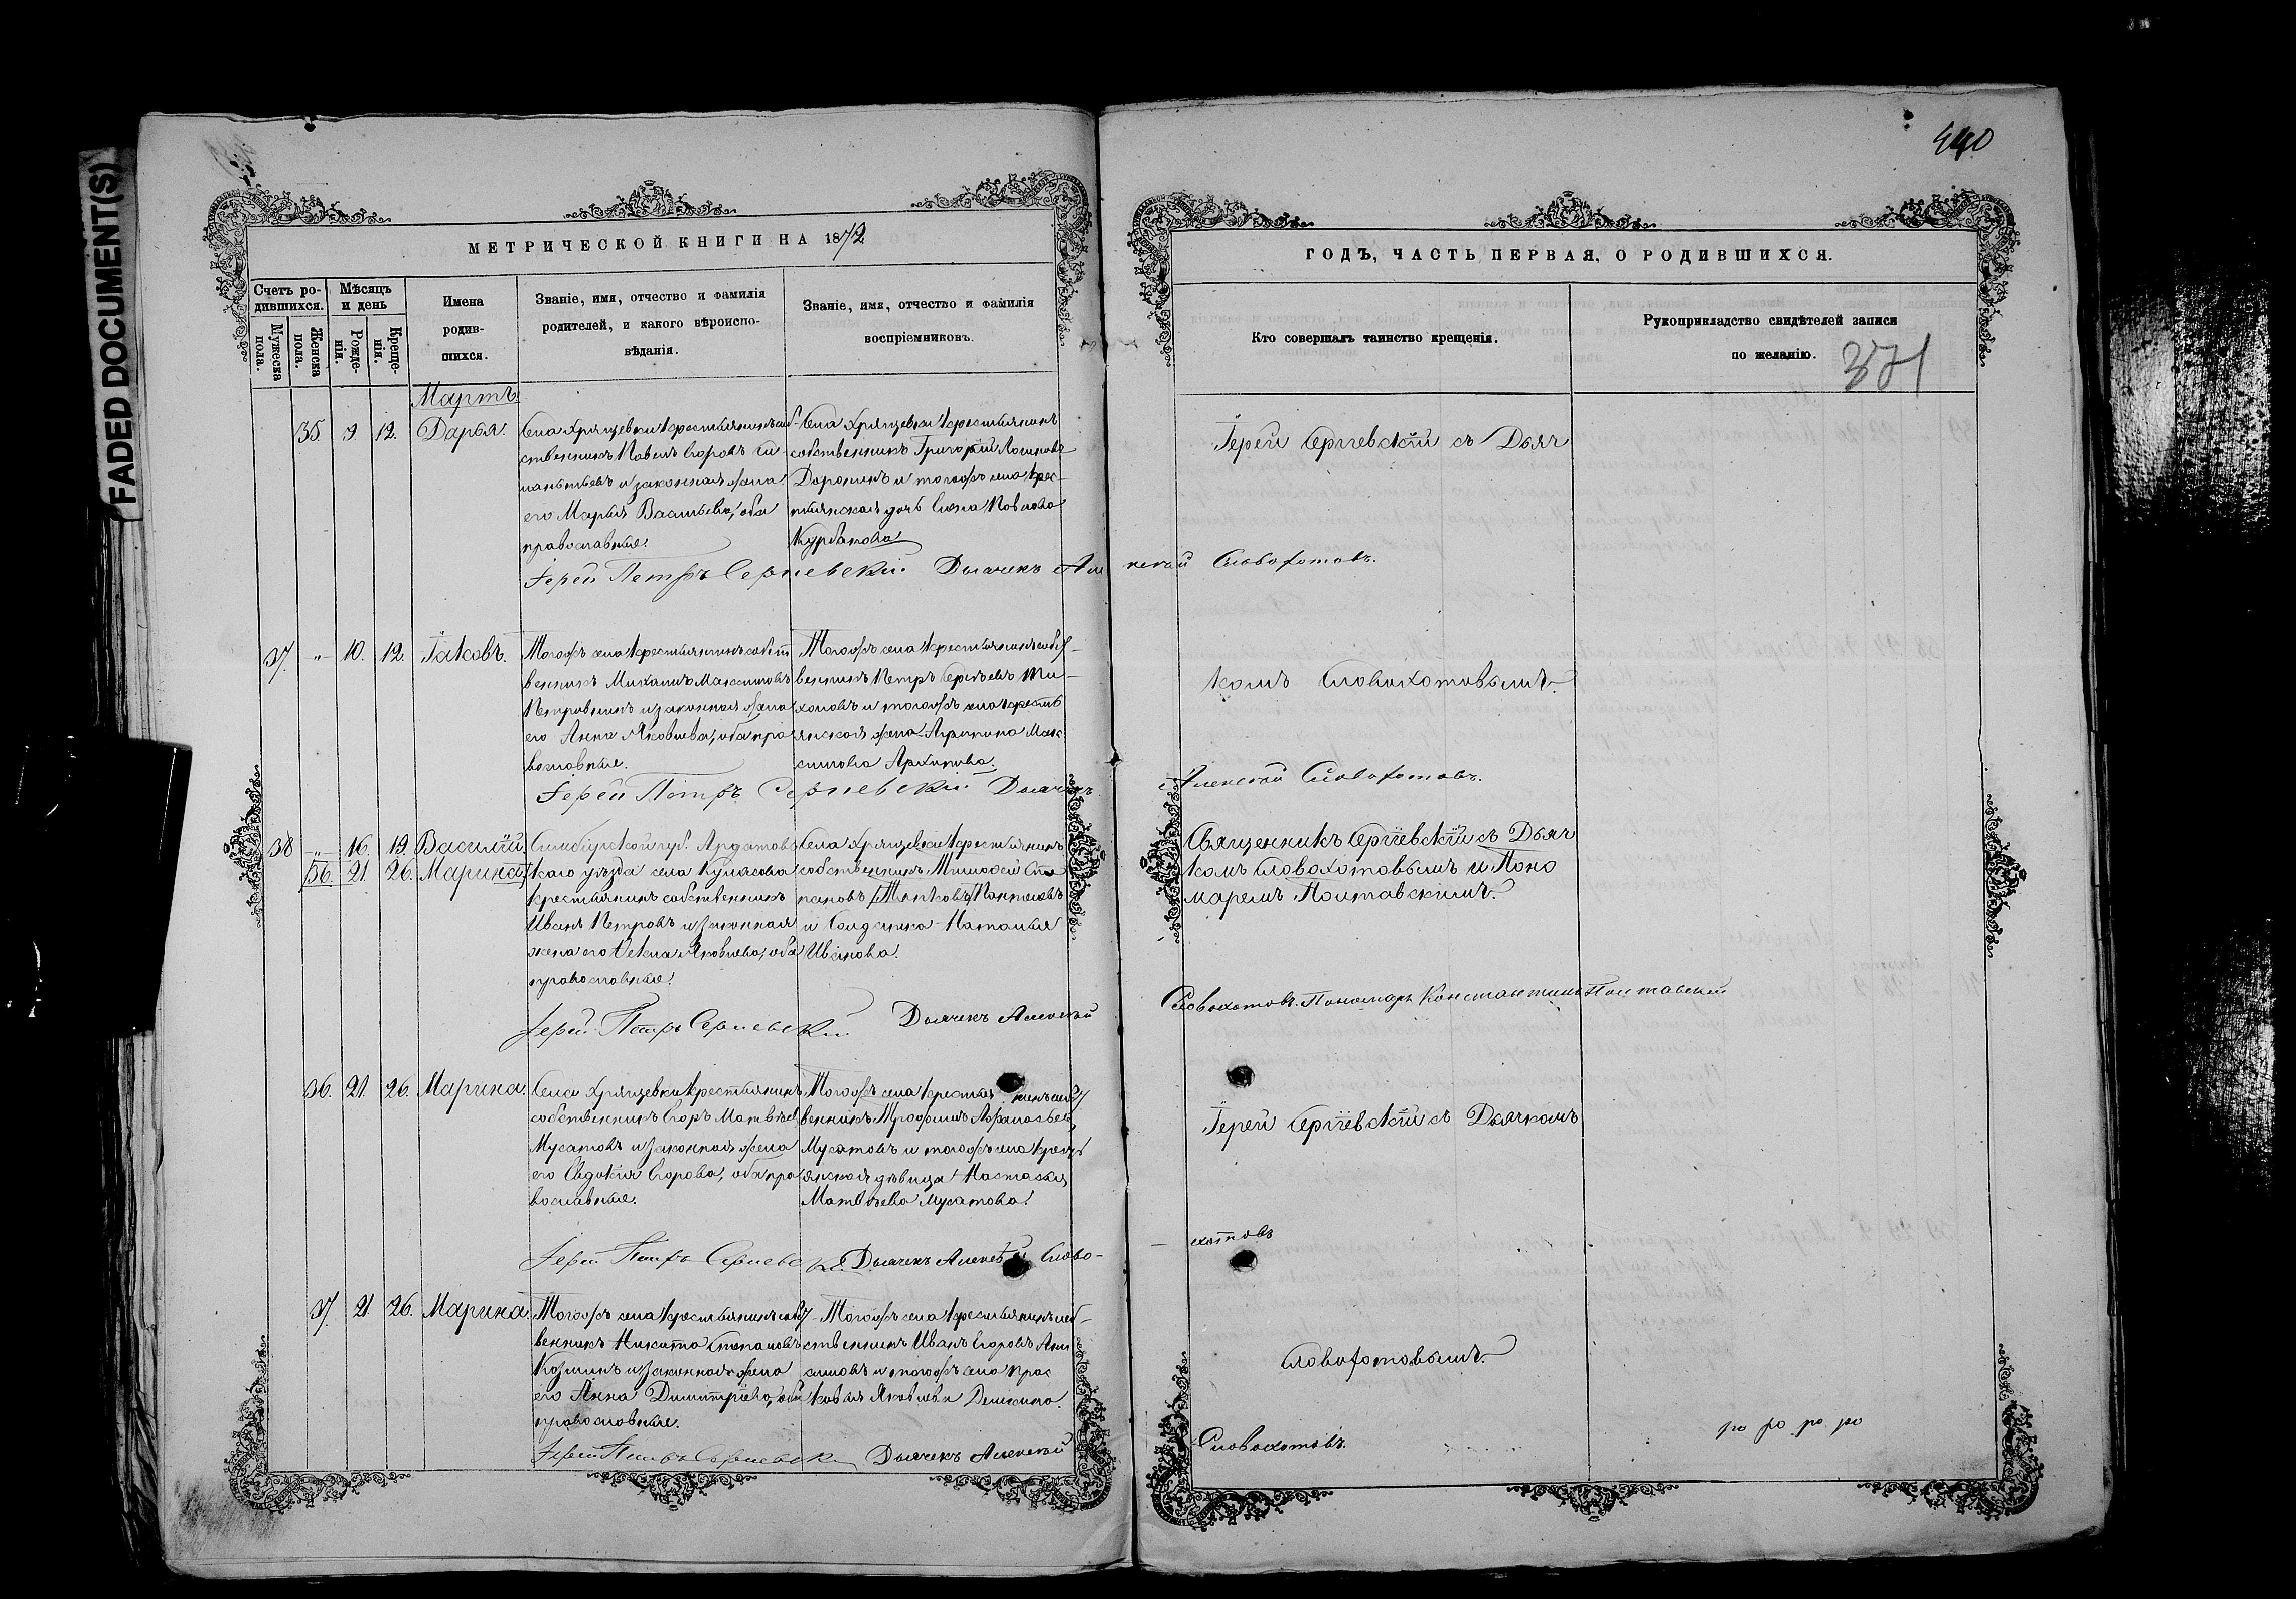 FADED DOCUMENT(S)
440
МЕТРИЧЕСКОЙ КНИГИ НА 1872
Счетъ ро-
дившихся.
Мужеска
пола.
Женска
пола.
Мѣсяцъ
и день
Рожде-
нія.
Креще-
нія.
Имена
родив-
шихся.
Званіе, имя, отчество и фамилія
родителей, и какого вѣроиспо-
вѣданія.
Званіе, имя, отчество и фамилія
воспріемниковъ.
Мартъ
35. 9 12. Дарья.
Села Хрящевки крестьянинъ соб-
ственникъ Павелъ Егоровъ
и законная жена
его Марья Васильева, оба
православные.
Села Хрящевки крестьянинъ
собственникъ Григорій Логиновъ
Доронинъ и тогожъ села крес-
тьянская дочь Елена Павлова
Курбатова
Іерей Петръ Сергіевскій Дьячекъ Але
37. „ 10. 12. Іаковъ.
Тогожъ села крестьянинъ собст
венникъ Михаилъ Максимовъ
Петровнинъ и законная жена
его Анна Яковлева, оба пра
вославные.
Тогожъ села крестьянинъ собст-
венникъ Петръ Сергѣевъ Ти-
хоновъ и тогожъ села кресть
янская жена Агрипина Мак
симова Архипова.
Іерей Петръ Сергіевскій Дьячекъ
38 „ 16. 19. Василій.
36. 21. 26. Марина
Симбирской губ. Ардатовс
каго уѣзда села Кулясова
крестьянинъ собственникъ
Иванъ Петровъ и законная
жена его Ѳекла Яковлева, оба
православные.
Села Хрящевки крестьянинъ
собственникъ Тимофей Сте
пановъ Пантелѣевъ
и солдатка Наталья
Иванова.
Іерей Петръ Сергіевскій Дьячекъ Алексѣй
36. 21. 26. Марина.
Села Хрящевки крестьянинъ
собственникъ Егоръ Матвѣев
Мусатовъ и законная жена
его Евдокія Егорова, оба пра
вославные.
Тогожъ села крестьянинъ собст
венникъ Трофимъ Афанасьев
Мусатовъ и тогожъ села крест
янская дѣвица Настасья
Матвѣева Мусатова.
Іерей Петръ Сергіевскій Дьячекъ Алексѣй Слово-
37. 21 26. Марина.
Тогожъ села крестьянинъ собст
венникъ Никита Степановъ
Козминъ и законная жена
его Анна Димитріева, оба
православные.
Тогожъ села крестьянинъ соб-
ственникъ Иванъ Егоровъ Ани
симовъ и тогожъ села Прас
ковья Яковлева Демкина.
Іерей Петръ Сергіевскій Дьячекъ Алексѣй
ГОДЪ, ЧАСТЬ ПЕРВАЯ, О РОДИВШИХСЯ.
Кто совершалъ таинство крещенія.
Рукоприкладство свидѣтелей записи
по желанію.
371
Іерей Сергіевскій съ Дьяч
ксѣй Словохотовъ.
комъ Словохотовымъ.
Алексѣй Словохотовъ.
Священникъ Сергіевскій съ Дьяч
комъ Словохотовымъ и Поно
маремъ Полтавскимъ.
Словохотовъ. Пономарь Константинъ Полтавскій
Іерей Сергіевскій съ Дьячкомъ
хотовъ
Словохотовымъ.
Словохотовъ.
ро ро ро ро